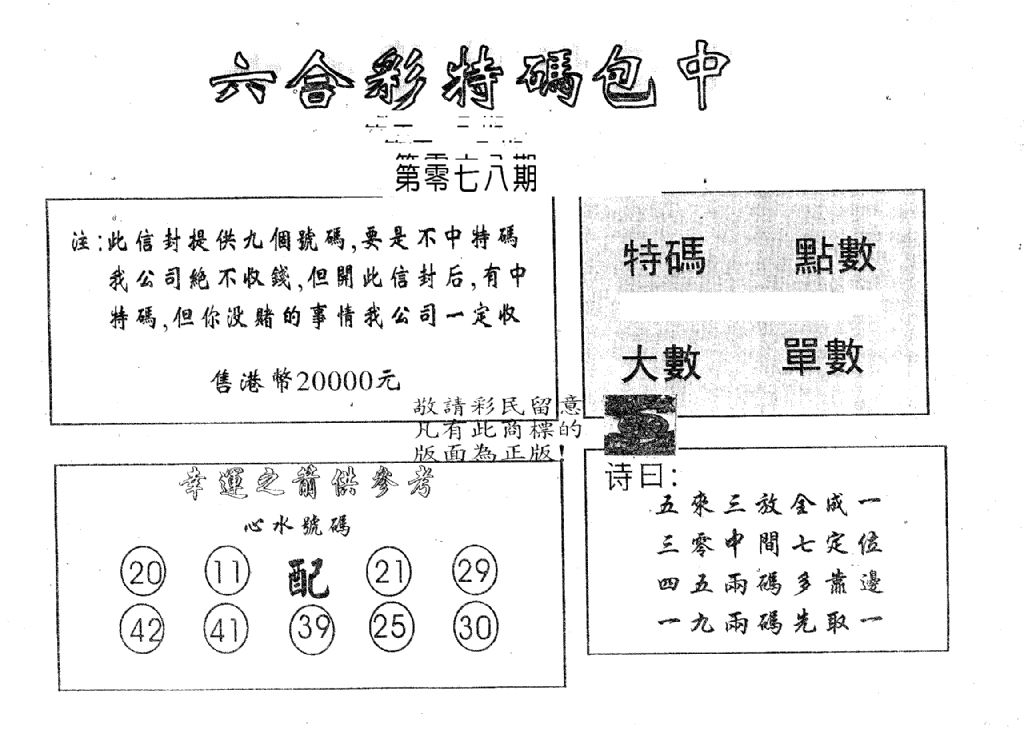 六合彩特碼包中
第零七八期
注:此信封提供九個號碼,要是不中特碼
我公司絕不收錢,但開此信封后,有中
特碼,但你没賭的事情我公司一定收
售港幣20000元
特碼 點數
大數 單數
敬請彩民留意
凡有此商標的
版面為正版!
幸運之箭供參考
心水號碼
20 11 配 21 29
42 41 39 25 30
诗曰:
五來三放全成一
三零中間七定位
四五兩碼多靠邊
一九兩碼先取一